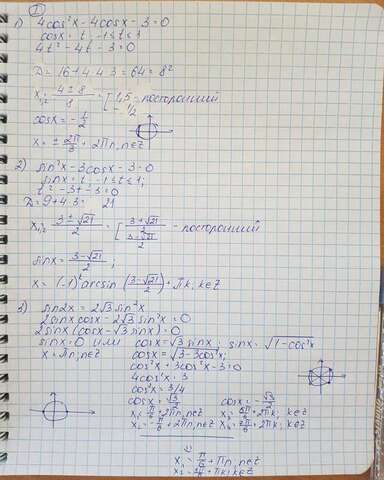 I
1) 4cos²x - 4cosx - 3 = 0
cosx = t, -1 ≤ t ≤ 1
4t² - 4t - 3 = 0
D = 16 + 4·4·3 = 64 = 8²
x₁,₂ = (4 ± 8)/8 = [1,5 - посторонний
- 1/2
cosx = -1/2
x = ± 2π/3 + 2πn, n∈Z
2) sin²x - 3cosx - 3 = 0
sinx = t, -1 ≤ t ≤ 1,
t² - 3t - 3 = 0
D = 9 + 4·3 = 21
x₁,₂ = (3 ± √21)/2 = [(3 + √21)/2 - посторонний
(3 - √21)/2
sinx = (3 - √21)/2;
x = (-1)ᵏ arcsin ((3 - √21)/2) + πk, k∈Z
3) sin2x = 2√3 sin²x
2sinx cosx - 2√3 sin²x = 0
2sinx (cosx - √3 sinx) = 0
sinx = 0 или cosx = √3 sinx; sinx = √1-cos²x
x = πn, n∈Z cosx = √3-3cos²x;
cos²x + 3cos²x - 3 = 0
4cos²x = 3
cos²x = 3/4
cosx = √3/2 cosx = -√3/2
x₁ = π/6 + 2πn, n∈Z x₃ = 5π/6 + 2πk, k∈Z
x₂ = -π/6 + 2πn, n∈Z x₄ = 7π/6 + 2πk, k∈Z
x₁ = π/6 + πn, n∈Z